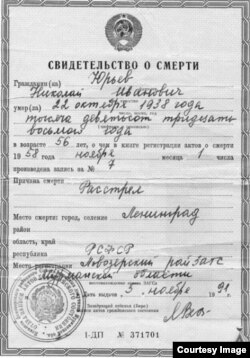 СВИДЕТЕЛЬСТВО О СМЕРТИ
Гражданин(ка) Юрьев
Николай Иванович
умер(ла) 22 октября 1938 года
тысяча девятьсот тридцать
восьмого года
в возрасте 56 лет, о чем в книге регистрации актов о смерти
19 58 года ноября месяца 1 числа
произведена запись за № 7
Причина смерти Расстрел
Место смерти: город, селение Ленинград
район
область, край
республика РСФСР
Место регистрации Ловозерский райзагс
Мурманской области
Дата выдачи 5 ноября 19 91 г.
I-ДП № 371701
Courtesy Image